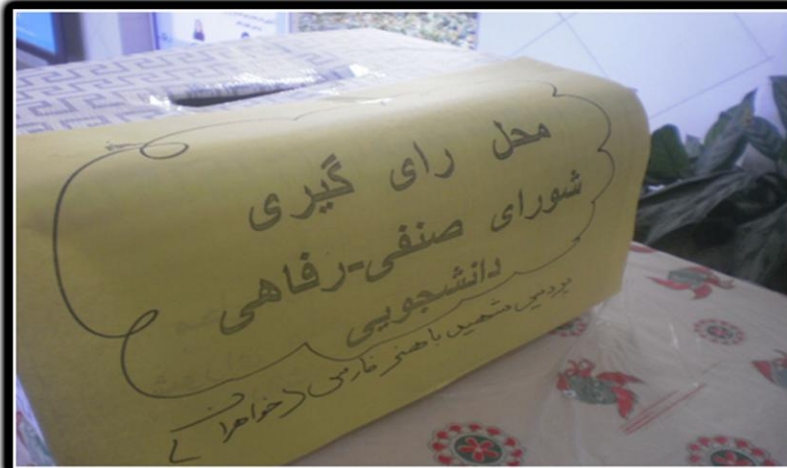 محل رای گیری
شورای صنفی-رفاهی
دانشجویی
پردیس شهید باهنر فارس (خواهران)